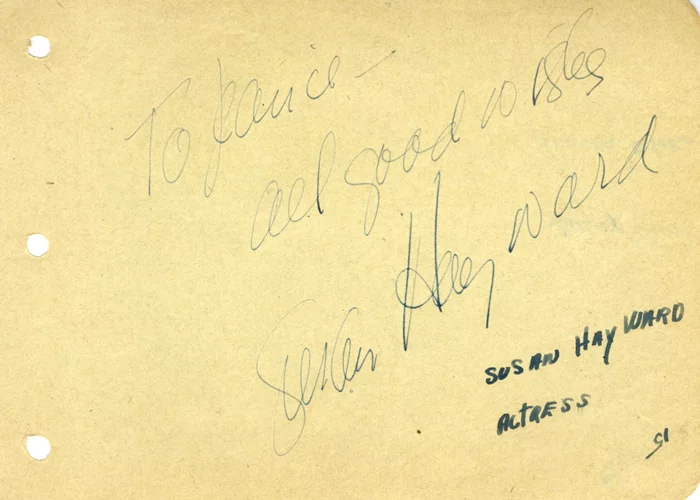 To Janice —
all good wishes
Susan Hayward
SUSAN HAYWARD
ACTRESS